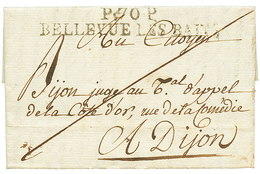 P.70.P.
BELLEVUE LES BAINS
Au Citoyen
juge au T.al d'appel
de la Côte d'or, rue de la Comédie
A Dijon